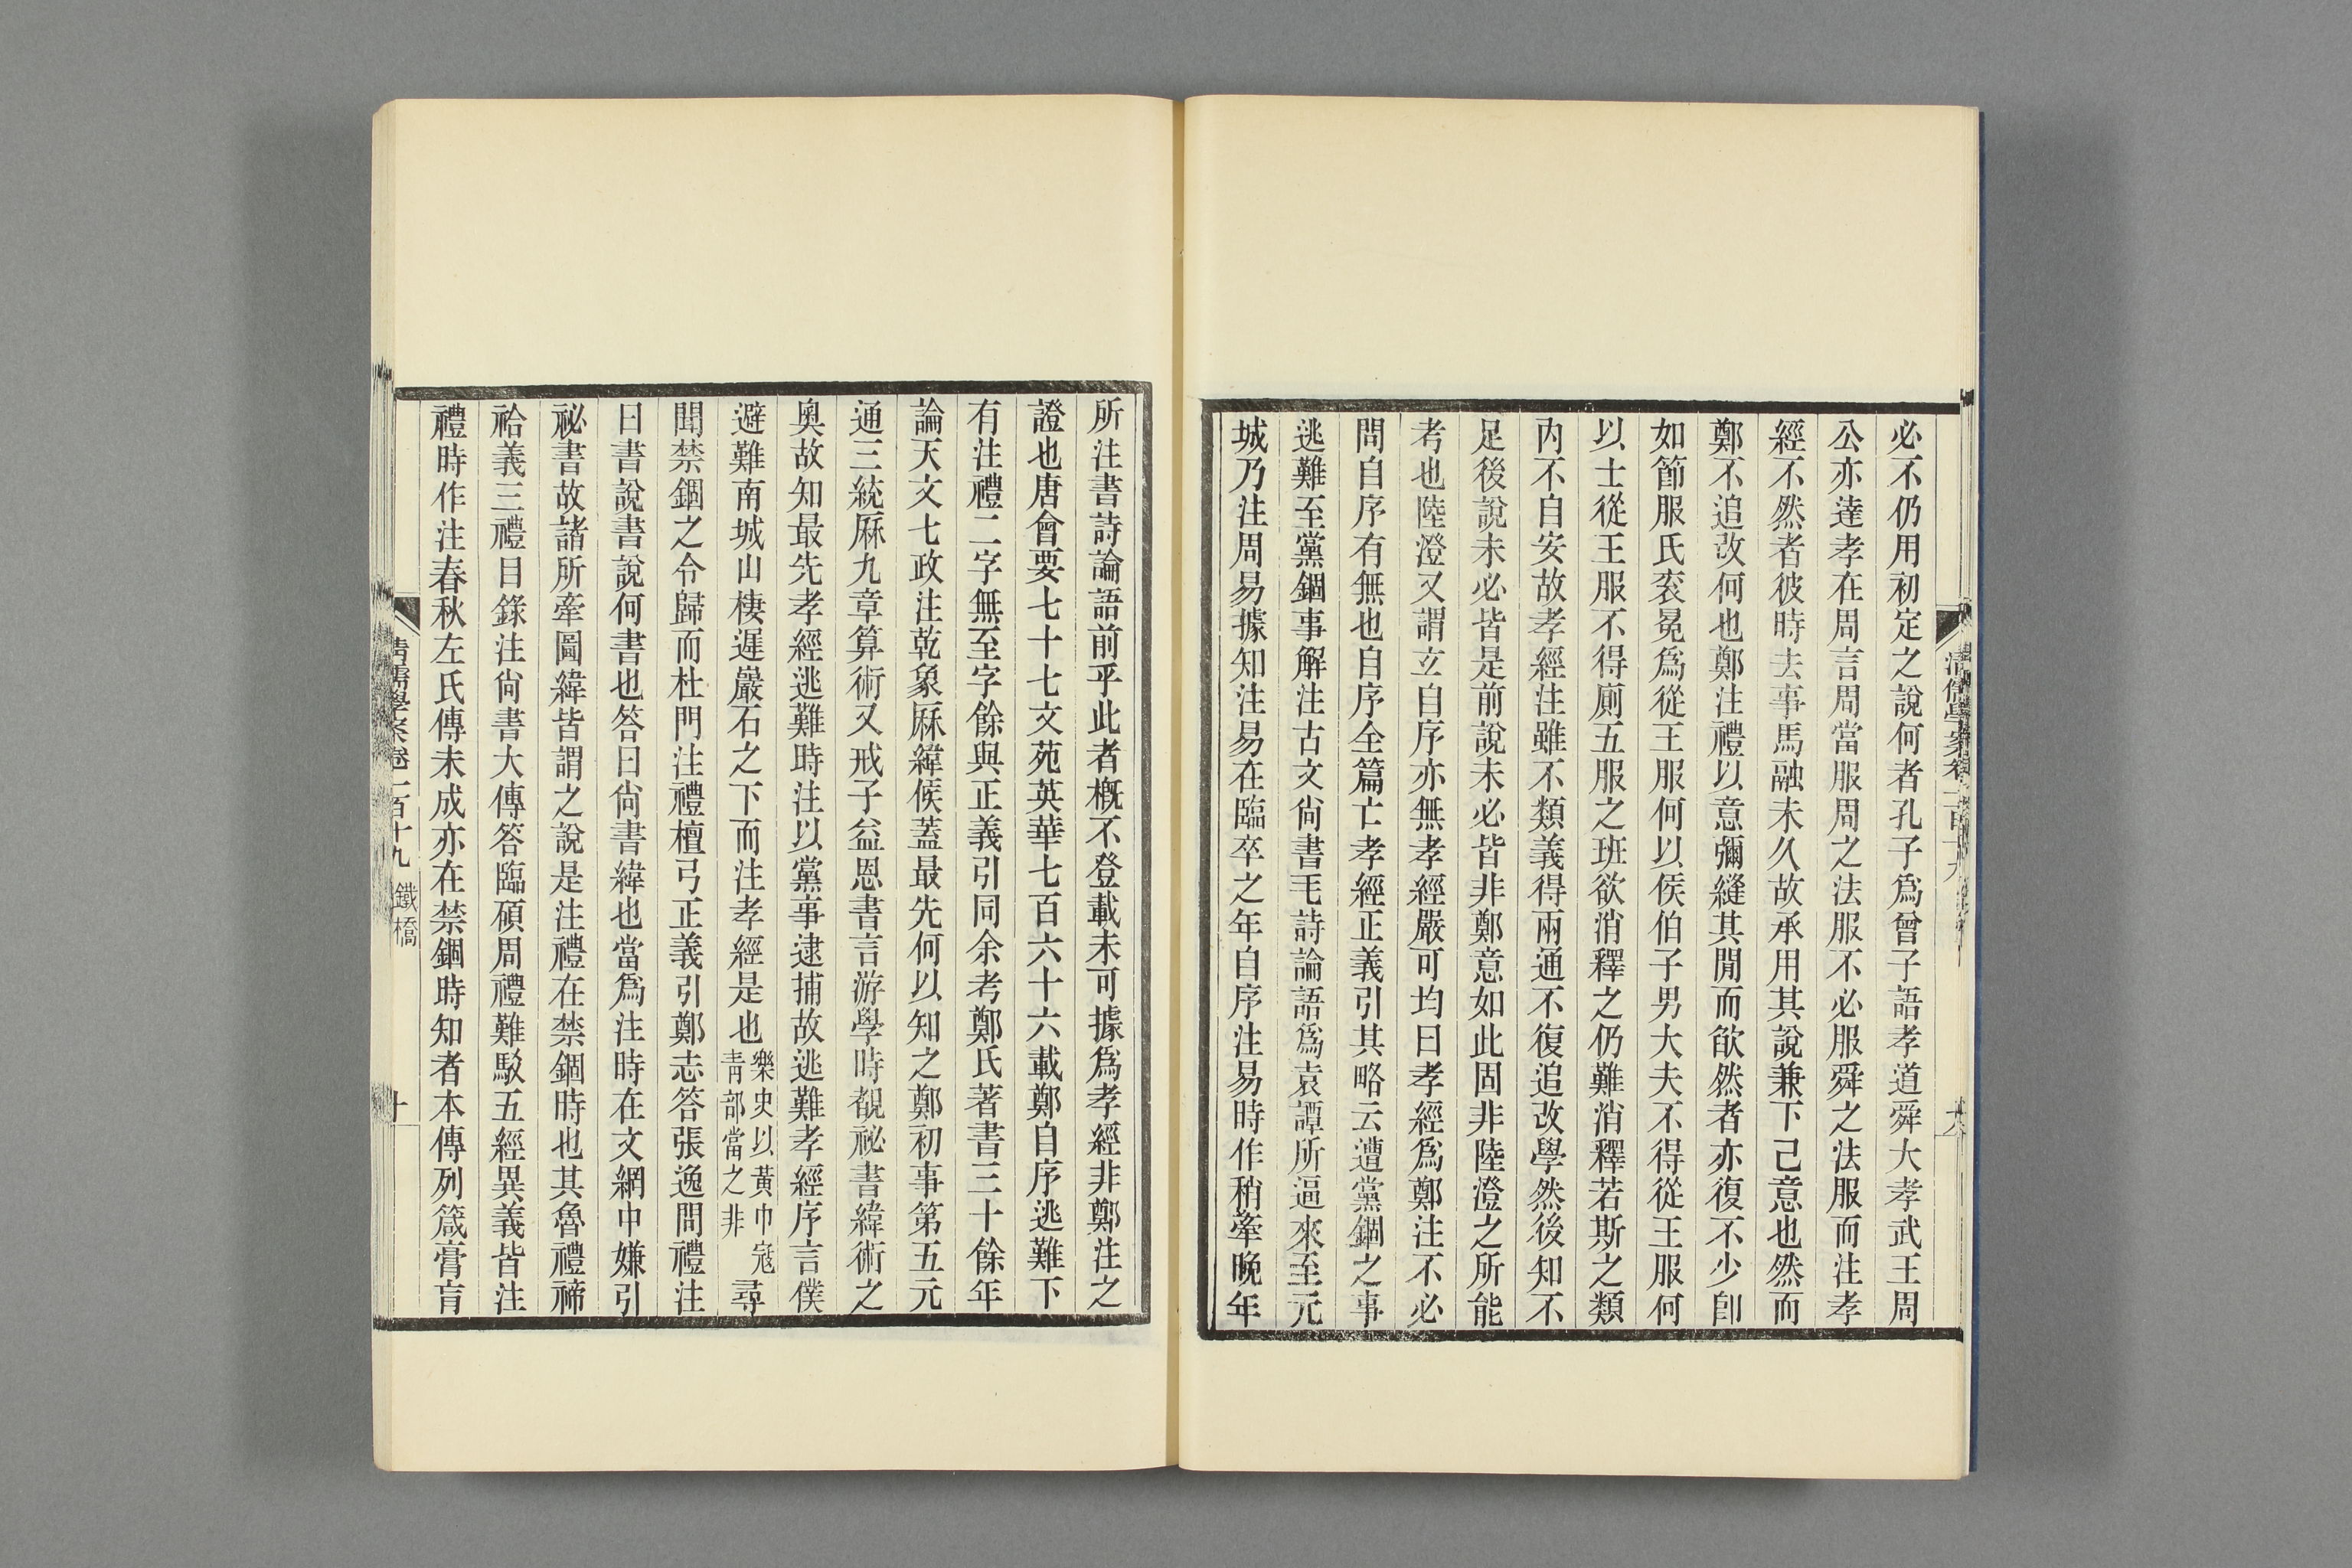 必不仍用初定之說何者孔子爲曾子語孝道舜大孝武王周
公亦達孝在周言周當服周之法服不必服舜之法服而注孝
經不然者彼時去事馬融未久故承用其說兼下己意也然而
鄭不追改何也鄭注禮以意彌縫其閒而欿然者亦復不少卽
如節服氏衮冕爲從王服何以侯伯子男大夫不得從王服何
以士從王服不得廁五服之班欲消釋之仍難消釋若斯之類
內不自安故孝經注雖不類義得兩通不復追改學然後知不
足後說未必皆是前說未必皆非鄭意如此固非陸澄之所能
考也陸澄又謂玄自序亦無孝經嚴可均曰孝經爲鄭注不必
問自序有無也自序全篇亡孝經正義引其略云遭黨錮之事
逃難至黨錮事解注古文尙書毛詩論語爲袁譚所逼來至元
城乃注周易據知注易在臨卒之年自序注易時作稍牽晚年
所注書詩論語前乎此者槪不登載未可據爲孝經非鄭注之
證也唐會要七十七文苑英華七百六十六載鄭自序逃難下
有注禮二字無至字餘與正義引同余考鄭氏著書三十餘年
論天文七政注乾象厤緯候蓋最先何以知之鄭初事第五元
通三統厤九章算術又戒子益恩書言游學時覩祕書緯術之
奧故知最先孝經逃難時注以黨事逮捕故逃難孝經序言僕
避難南城山棲遲巖石之下而注孝經是也樂史以黃巾寇靑部當之非尋
聞禁錮之令歸而杜門注禮檀弓正義引鄭志答張逸問禮注
曰書說書說何書也答曰尙書緯也當爲注時在文網中嫌引
祕書故諸所牽圖緯皆謂之說是注禮在禁錮時也其魯禮禘
祫義三禮目錄注尙書大傳答臨碩周禮難駁五經異義皆注
禮時作注春秋左氏傳未成亦在禁錮時知者本傳列箴膏肓
清儒學案卷一百十九 鐵橋
十